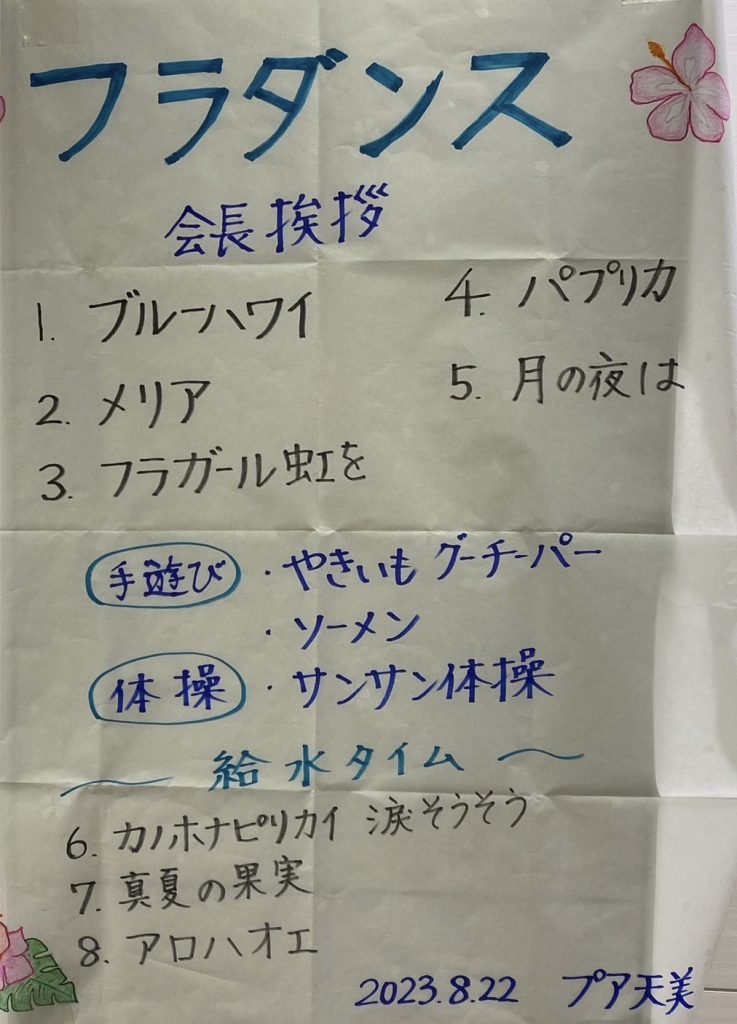 フラダンス
会長挨拶
1. ブルーハワイ
2. メリア
3. フラガール虹を
4. パプリカ
5. 月の夜は
手遊び ・やきいもグーチーパー
・ソーメン
体操 ・サンサン体操
～ 給水タイム ～
6. カノホナピリカイ 涙そうそう
7. 真夏の果実
8. アロハオエ
2023.8.22 プア天美